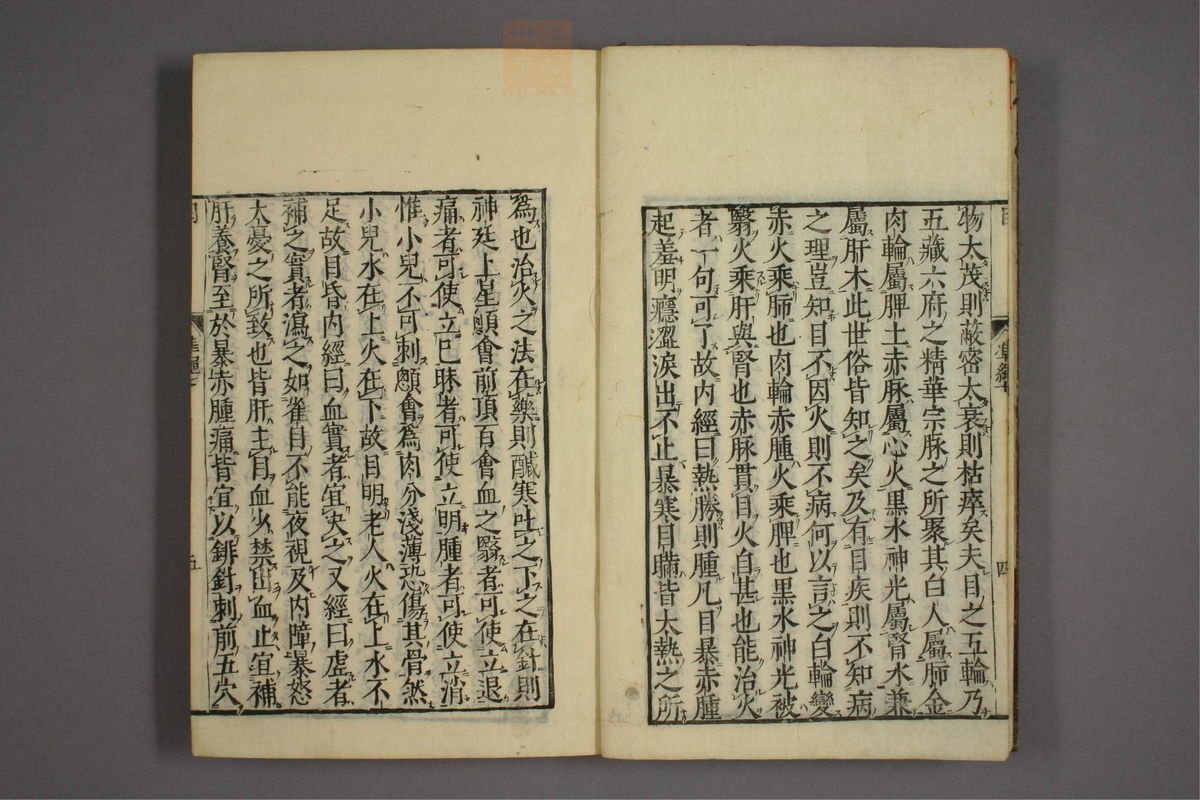 物太茂則蔽密太衰則枯瘁矣夫目之五輪乃
五藏六府之精華宗脉之所聚其白人屬肺金
肉輪屬脾土赤脉屬心火黒水神光屬腎水兼
屬肝木此世俗皆知之矣及有目疾則不知病
之理豈知目不因火則不病何以言之白輪變
赤火乘肺也肉輪赤腫火乘脾也黒水神光被
翳火乘肝與腎也赤脉貫目火自甚也能治火
者一句可了故内經曰熱勝則腫凡目暴赤腫
起羞明癮澀淚出不止暴寒目瞞皆太熱之所
四
為也治火之法在藥則鹹寒吐之下之在針則
神廷上星顖會前頂百會血之翳者可使立退
痛者可使立已昧者可使立明腫者可使立消
惟小兒不可刺顖會為肉分淺薄恐傷其骨然
小兒水在上火在下故目明老人火在上水不
足故目昏内經曰血實者宜决之又經曰虛者
補之實者瀉之如雀目不能夜視及内障暴怒
太憂之所致也皆肝主目血少禁出血止宜補
肝養腎至於暴赤腫痛皆宜以鋒針刺前五穴
五